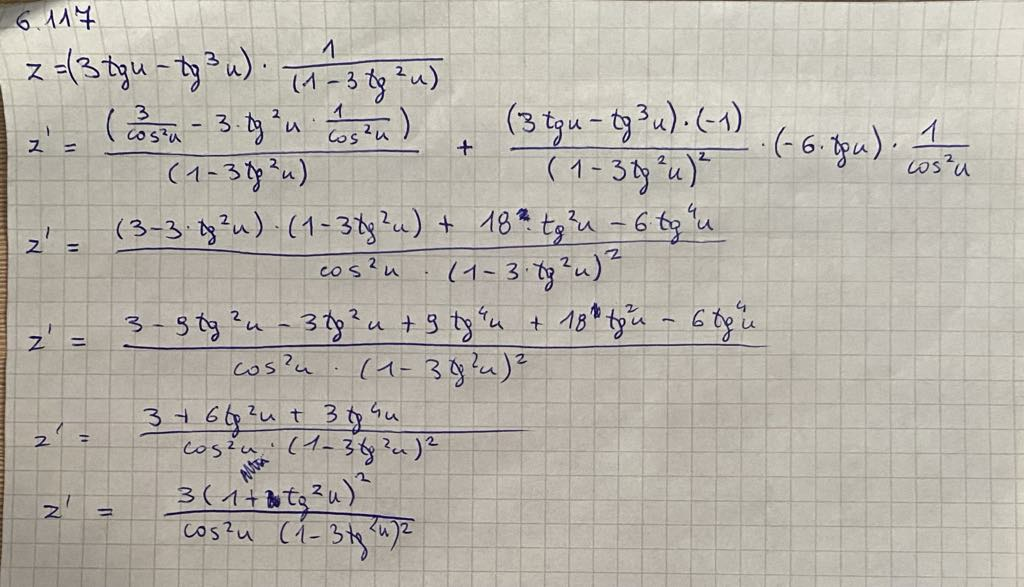 6.117
z = (3 tg u − tg³ u) · 1 / (1 − 3 tg² u)
z' = (3/cos²u − 3 · tg² u · 1/cos²u) / (1 − 3 tg² u) + (3 tg u − tg³ u) · (−1) / (1 − 3 tg² u)² · (−6 · tg u) · 1/cos²u
z' = (3 − 3 · tg² u) · (1 − 3 tg² u) + 18 · tg² u − 6 tg⁴ u / cos² u · (1 − 3 · tg² u)²
z' = 3 − 9 tg² u − 3 tg² u + 9 tg⁴ u + 18 tg² u − 6 tg⁴ u / cos² u · (1 − 3 tg² u)²
z' = 3 + 6 tg² u + 3 tg⁴ u / cos² u · (1 − 3 tg² u)²
z' = 3 (1 + tg² u)² / cos² u (1 − 3 tg² u)²